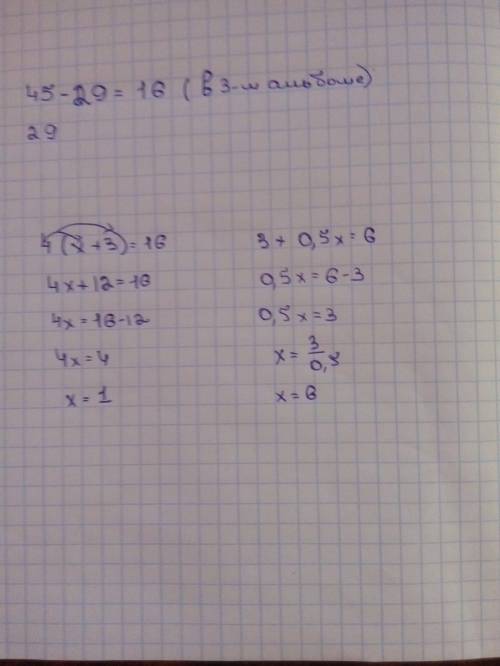 45-29=16 (в 3-м альбоме)
29
4(x+3)=16
4x+12=16
4x=16-12
4x=4
x=1
3+0,5x=6
0,5x=6-3
0,5x=3
x=3/0,5
x=6